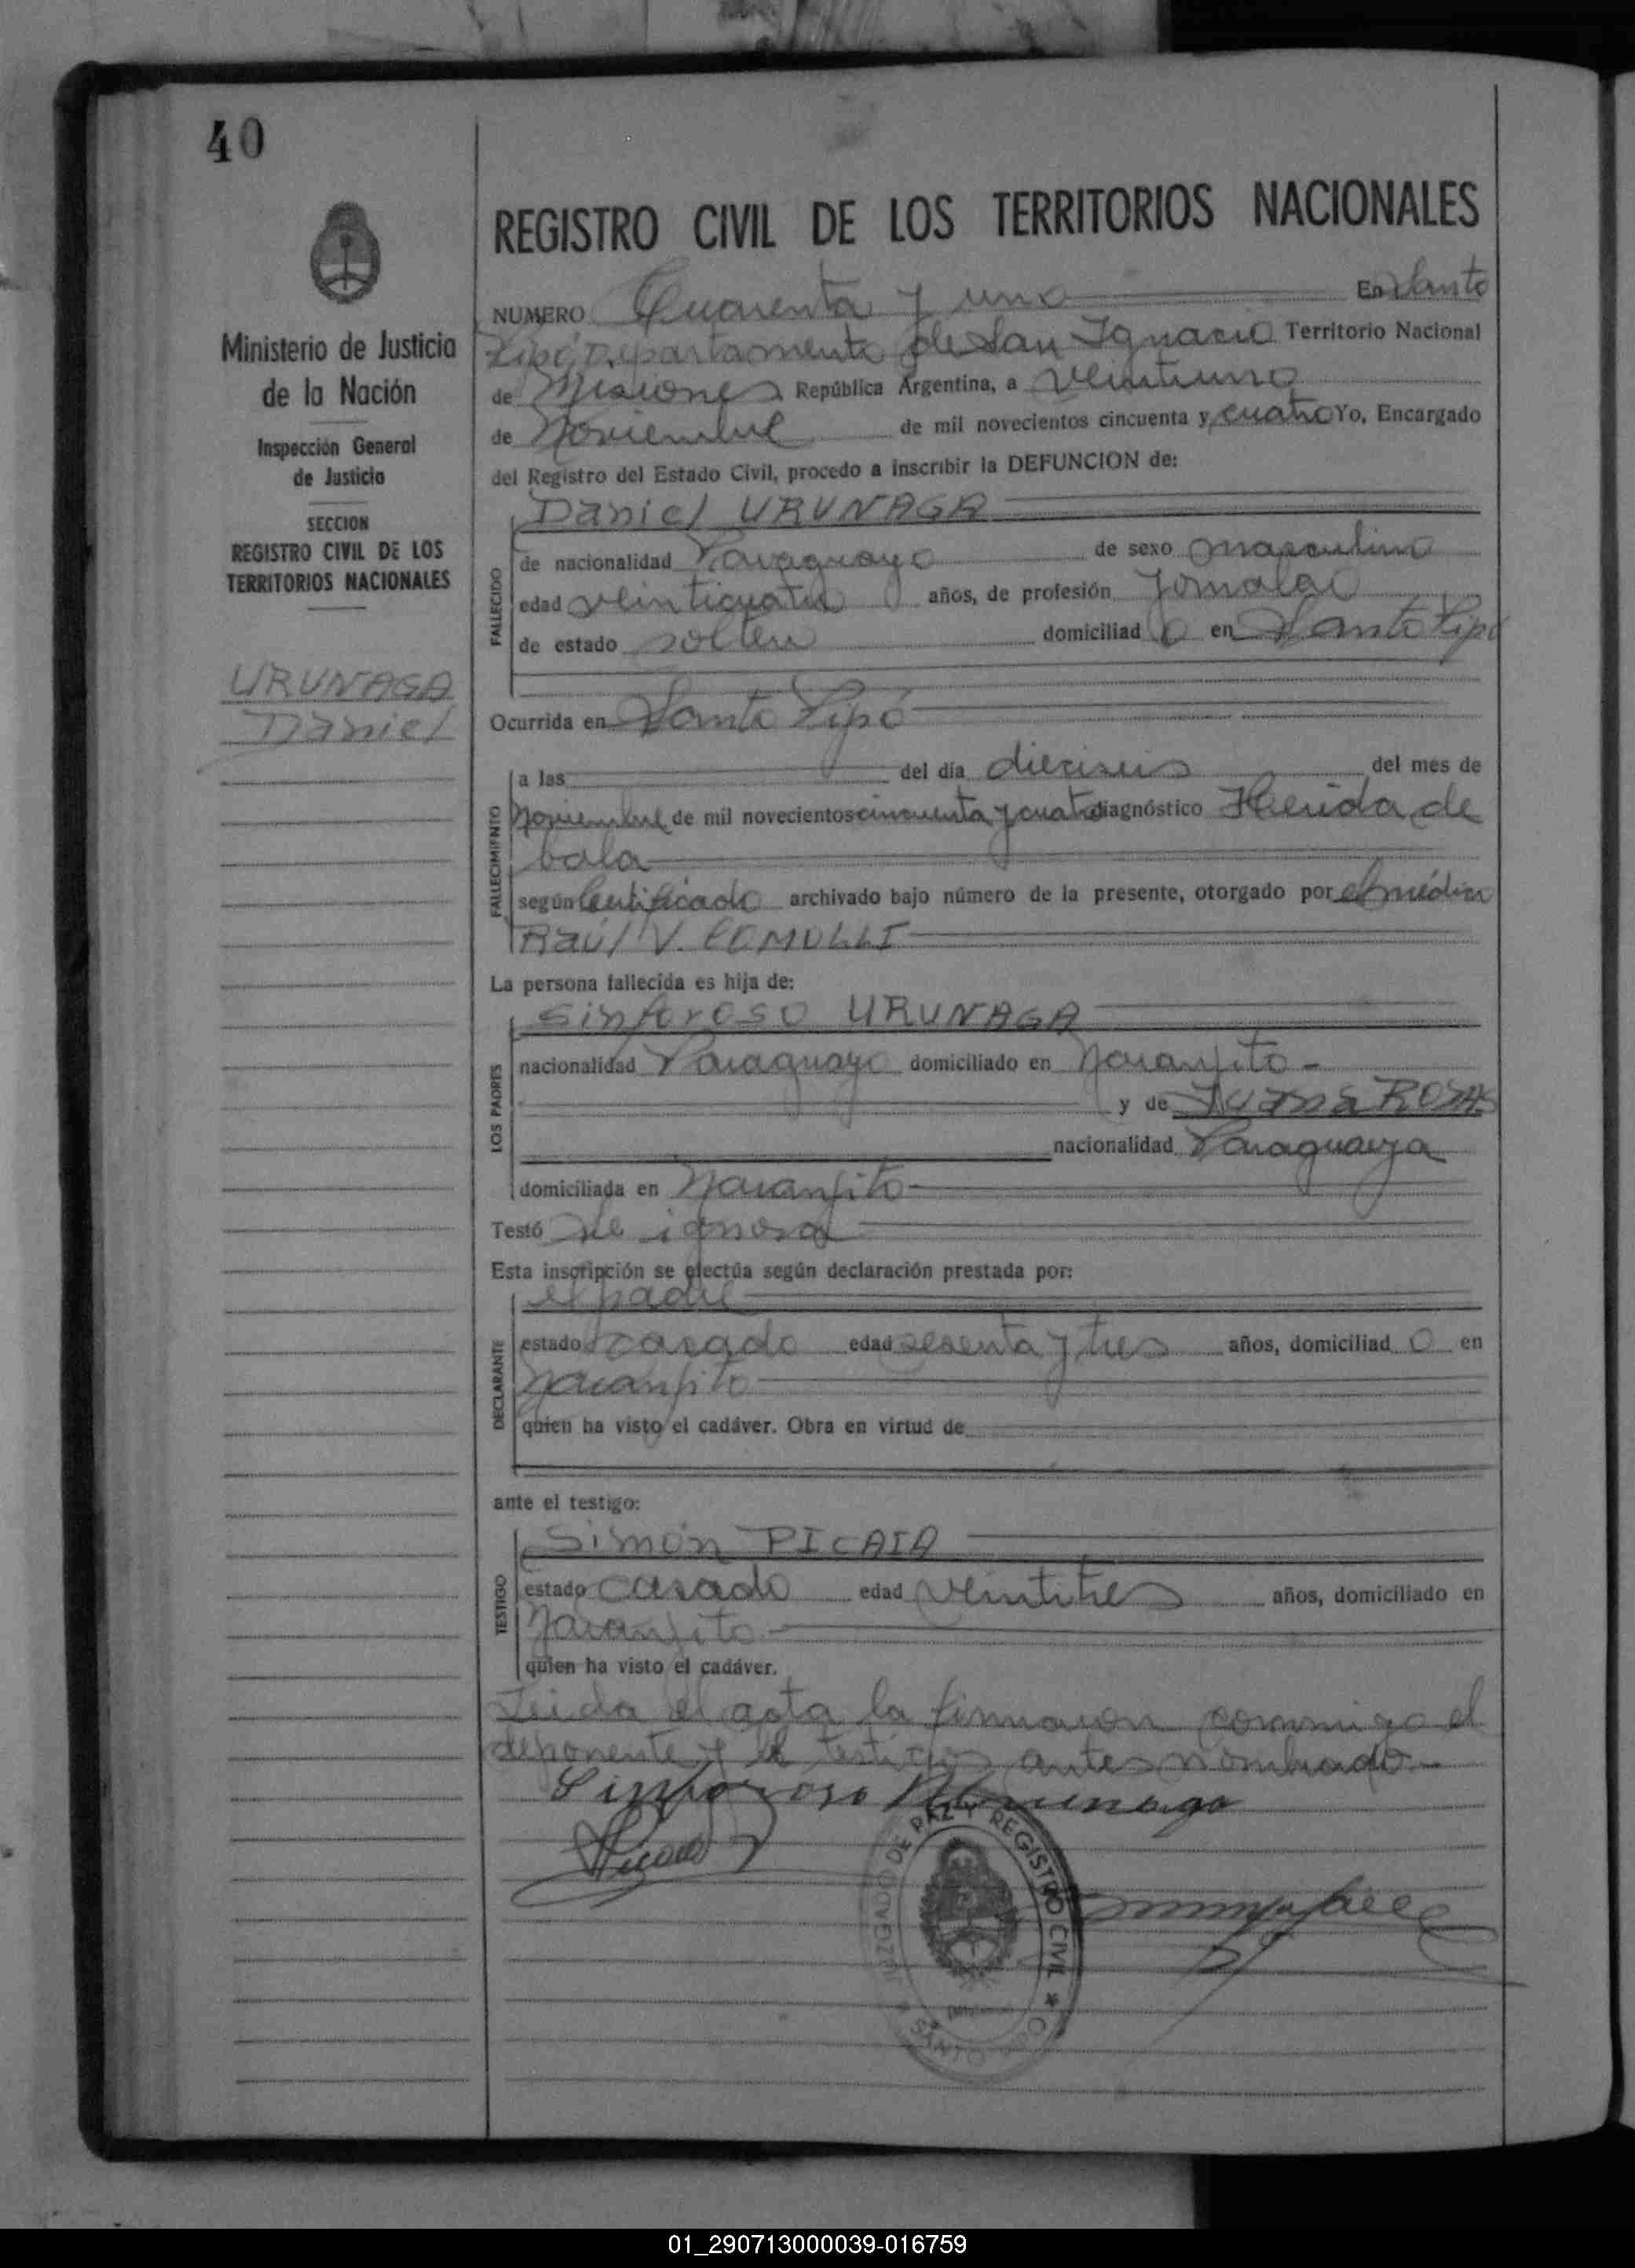 40
Ministerio de Justicia
de la Nación
Inspección General
de Justicia
SECCION
REGISTRO CIVIL DE LOS
TERRITORIOS NACIONALES
URUNAGA
Daniel
REGISTRO CIVIL DE LOS TERRITORIOS NACIONALES
NUMERO Cuarenta y uno En Santo
Pipó Departamento de San Ignacio Territorio Nacional
de Misiones República Argentina, a veintiuno
de Noviembre de mil novecientos cincuenta y cuatro Yo, Encargado
del Registro del Estado Civil, procedo a inscribir la DEFUNCION de:
Daniel URUNAGA
FALLECIDO
de nacionalidad Paraguayo de sexo masculino
edad veinticuatro años, de profesión Jornalero
de estado soltero domiciliad o en Santo Pipó
Ocurrida en Santo Pipó
FALLECIMIENTO
a las del día dieciseis del mes de
Noviembre de mil novecientos cincuenta y cuatro diagnóstico Herida de
bala
según Certificado archivado bajo número de la presente, otorgado por el médico
Raúl V. COMOLLI
La persona fallecida es hija de:
LOS PADRES
Sinforoso URUNAGA
nacionalidad Paraguayo domiciliado en Naranjito -
y de Juana ROJAS
nacionalidad Paraguaya
domiciliada en Naranjito
Testó Se ignora
Esta inscripción se efectúa según declaración prestada por:
DECLARANTE
el padre
estado casado edad sesenta y tres años, domiciliad o en
Naranjito
quien ha visto el cadáver. Obra en virtud de
ante el testigo:
TESTIGO
Simón PICAIA
estado casado edad veintitres años, domiciliado en
Naranjito
quien ha visto el cadáver.
Leida el acta la firmaron conmigo el
deponente y el testigo antes nombrado -
Sinforoso Urunaga
JUZGADO DE PAZ Y REGISTRO CIVIL
SANTO PIPO
01_290713000039-016759